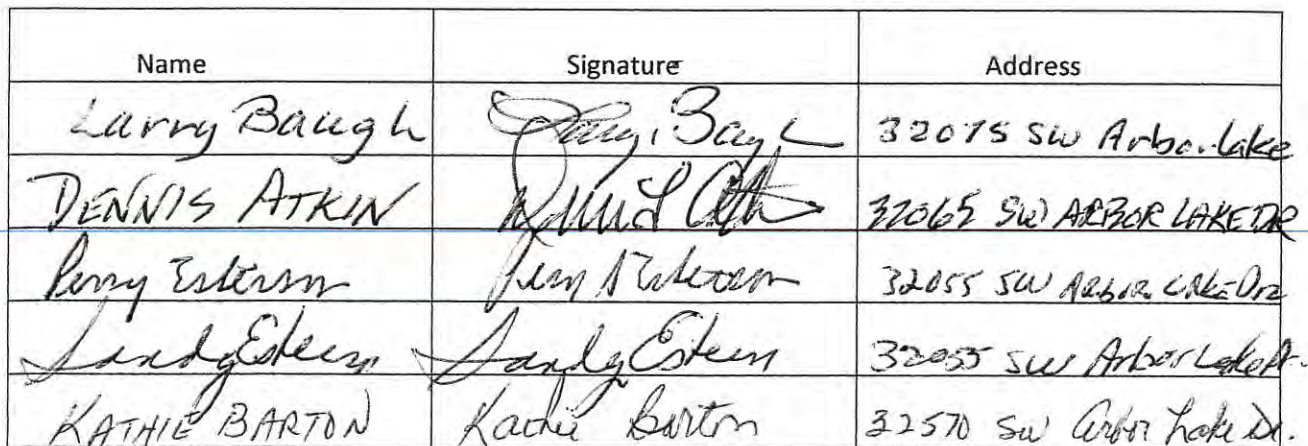 Name Signature Address
Larry Baugh Larry Baugh 32075 SW Arbor Lake
DENNIS ATKIN 32065 SW ARBOR LAKE DR
Perry 32055 SW ARBOR LAKE Dr
Sandy Sandy 32055 SW Arbor Lake Dr.
KATHIE BARTON Kathie Barton 32570 SW Arbor Lake Dr.